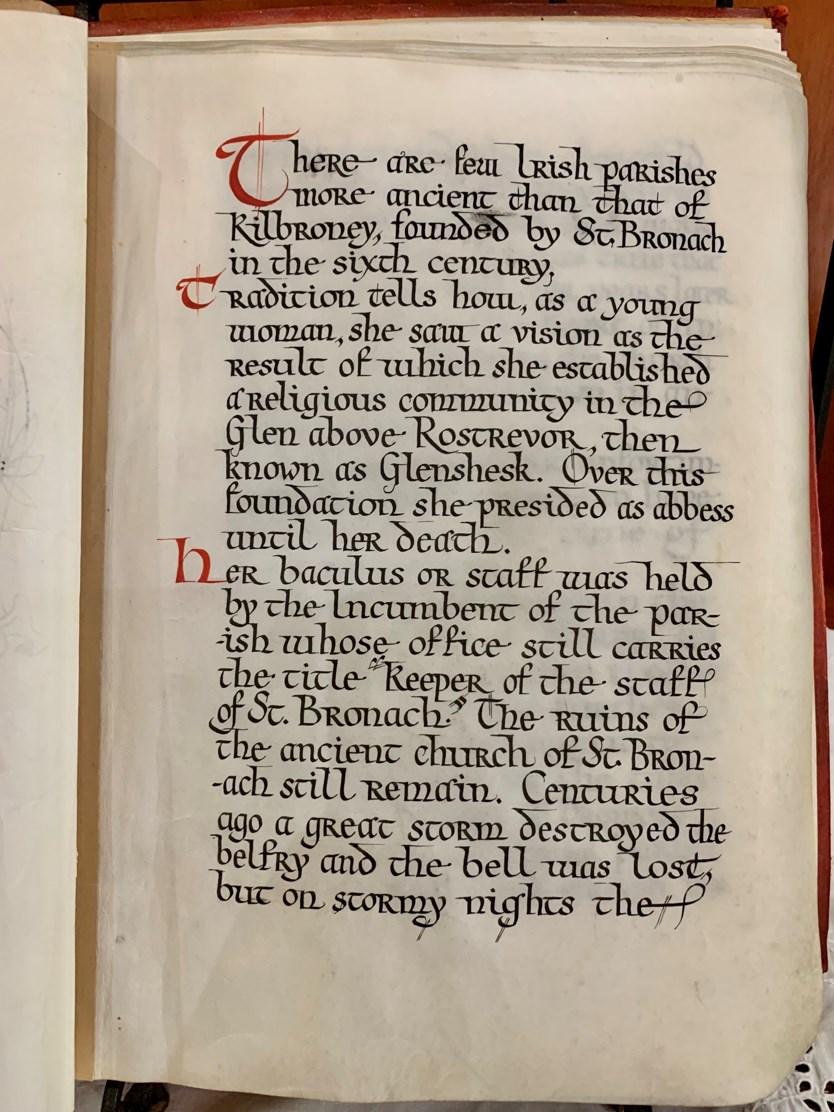 There are few Irish parishes
more ancient than that of
Kilbroney, founded by St. Bronach
in the sixth century,
Tradition tells how, as a young
woman, she saw a vision as the
result of which she established
a religious community in the
Glen above Rostrevor, then
known as Glenshesk. Over this
foundation she presided as abbess
until her death.
her baculus or staff was held
by the Incumbent of the par-
-ish whose office still carries
the title "Keeper of the staff
of St. Bronach." The ruins of
the ancient church of St. Bron-
-ach still remain. Centuries
ago a great storm destroyed the
belfry and the bell was lost,
but on stormy nights the